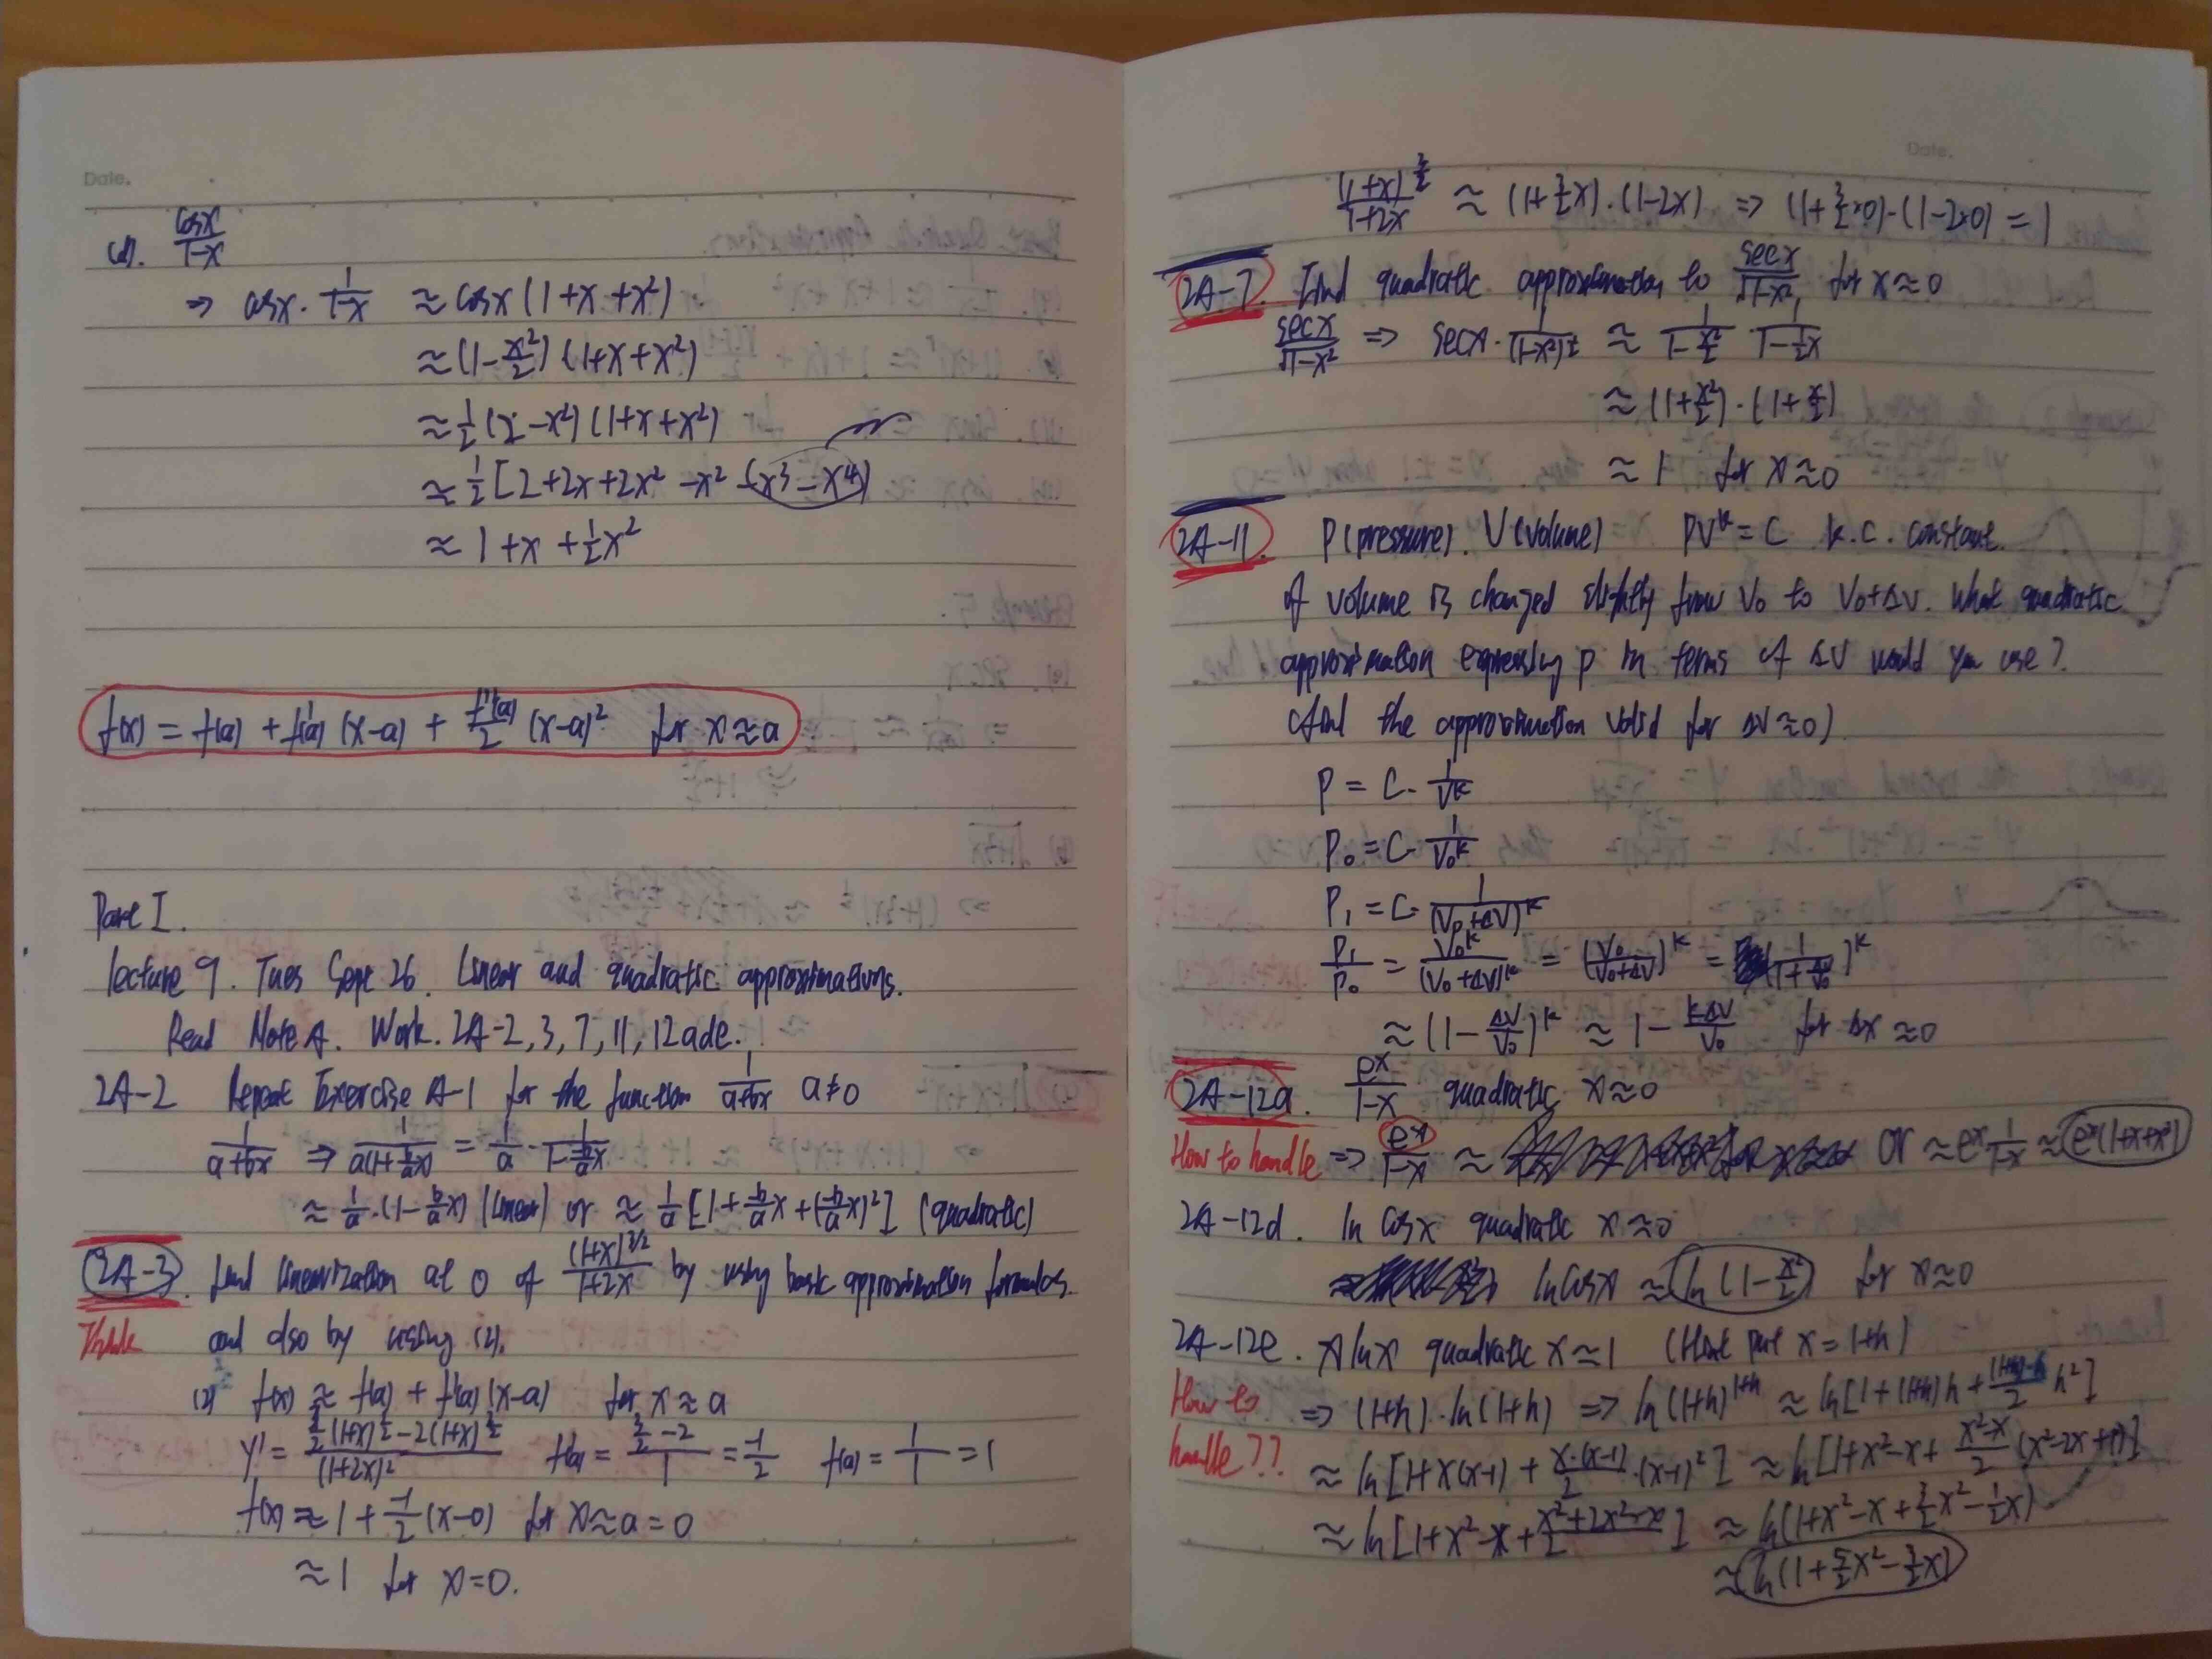 Date.
(d). cosx/(1-x)
⇒ cosx · 1/(1-x) ≈ cosx (1+x+x²)
≈ (1-x²/2) (1+x+x²)
≈ 1/2 (2-x²) (1+x+x²)
≈ 1/2 [2+2x+2x²-x²-x³-x⁴)
≈ 1+x+1/2x²
f(x) = f(a) + f'(a) (x-a) + f''(a)/2 (x-a)² for x≈a
Part I.
Lecture 9. Tues Sept 26. Linear and quadratic approximations.
Read Note A. Work. 2A-2, 3, 7, 11, 12ade.
2A-2 Repeat Exercise A-1 for the function 1/(a+bx) a≠0
1/(a+bx) ⇒ 1/(a(1+b/a x)) = 1/a · 1/(1--b/a x)
≈ 1/a·(1-b/a x) (linear) or ≈ 1/a [1+-b/a x+(-b/a x)²] (quadratic)
2A-3. find linearization at 0 of (1+x)^3/2/(1+2x) by using basic approximation formulas.
and also by using (2).
(2) f(x) ≈ f(a) + f'(a) (x-a) for x≈a
y' = (3/2(1+x)^1/2 - 2(1+x)^3/2)/(1+2x)² f'(a) = (3/2-2)/1 = -1/2 f(a) = 1/1 = 1
f(x) ≈ 1 + -1/2 (x-0) for x≈a=0
≈ 1 for x=0.
Date.
(1+x)^3/2/(1+2x) ≈ (1+3/2x)·(1-2x) ⇒ (1+3/2×0)·(1-2×0) = 1
2A-7. Find quadratic approximation to secx/√(1-x²) for x≈0
secx/√(1-x²) ⇒ secx · 1/(1-x²)^1/2 ≈ 1/(1-x²/2) · 1/(1-1/2x)
≈ (1+x²/2)·(1+x/2)
≈ 1 for x≈0
2A-11. P(pressure). V(volume) PV^k = C k.c. constant.
if volume is changed slightly from V₀ to V₀+ΔV. What quadratic
approximation expressing p in terms of ΔV would you use?
(find the approximation valid for ΔV≈0)
P = C · 1/V^k
P₀ = C · 1/V₀^k
P₁ = C · 1/(V₀+ΔV)^k
P₁/P₀ = V₀^k/(V₀+ΔV)^k = (V₀/(V₀+ΔV))^k = (1/(1+ΔV/V₀))^k
≈ (1-ΔV/V₀)^k ≈ 1-kΔV/V₀ for Δx≈0
2A-12a. e^x/(1-x) quadratic x≈0
How to handle ⇒ e^x/(1-x) ≈ or ≈ e^x 1/(1-x) ≈ e^x(1+x+x²)
2A-12d. ln cosx quadratic x≈0
ln cosx ≈ ln(1-x²/2) for x≈0
2A-12e. xlnx quadratic x≈1 (Hint put x=1+h)
How to ⇒ (1+h)·ln(1+h) ⇒ ln(1+h)^1+h ≈ ln[1+(1+h)h+(1+h)·h/2 h²]
handle?? ≈ ln[1+x(x-1)+x·(x-1)/2·(x-1)²] ≈ ln[1+x²-x+(x²-x)/2 (x²-2x+1)]
≈ ln[1+x²-x+ ] ≈ ln(1+x²-x+3/2x²-1/2x)
≈ ln(1+5/2x²-3/2x)